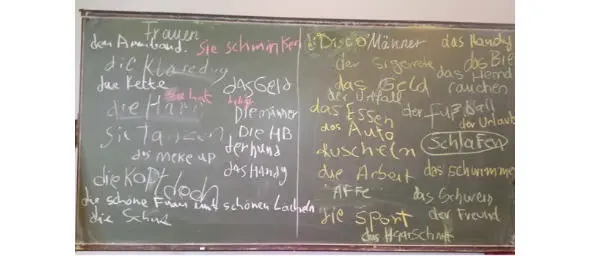 Frauen
den Armband. Sie schminken
die Kleredung
die Kette
dAsGeld
Sie hat
die Haar
Die männer
Sie Tanzen
Die HB
der hund
das make up
dAs HAndy
die Kopf doch
die schöne Frau mit schönen Lächeln
die Schue
Disco Männer
das Handy
der Sigerete
das BIE
das Geld
das Hemd
rauchen
der Unfall
das Essen
der Fuß Ball
der Urlaub
das Auto
Kuscheln
Schlafen
die Arbeit
das schwimme
"AFFE"
das Schwein
die Sport
der Freund
das Haarschnitt